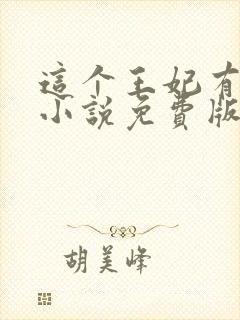 這个王妃有
小說免費版
胡美峰